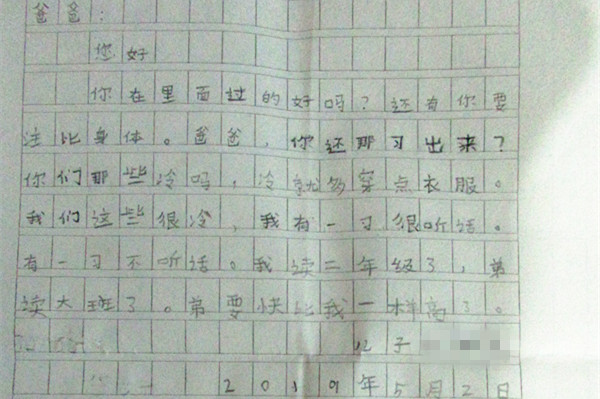 爸爸：
您好
你在里面过的好吗？还有你要
注比身体。爸爸，你还那习出来？
你们那些冷吗，冷就多穿点衣服。
我们这些很冷，我有一习很听话。
有一习不听话。我读二年级了，弟
读大班了。弟要快比我一样高了。
儿子
2019年5月2日